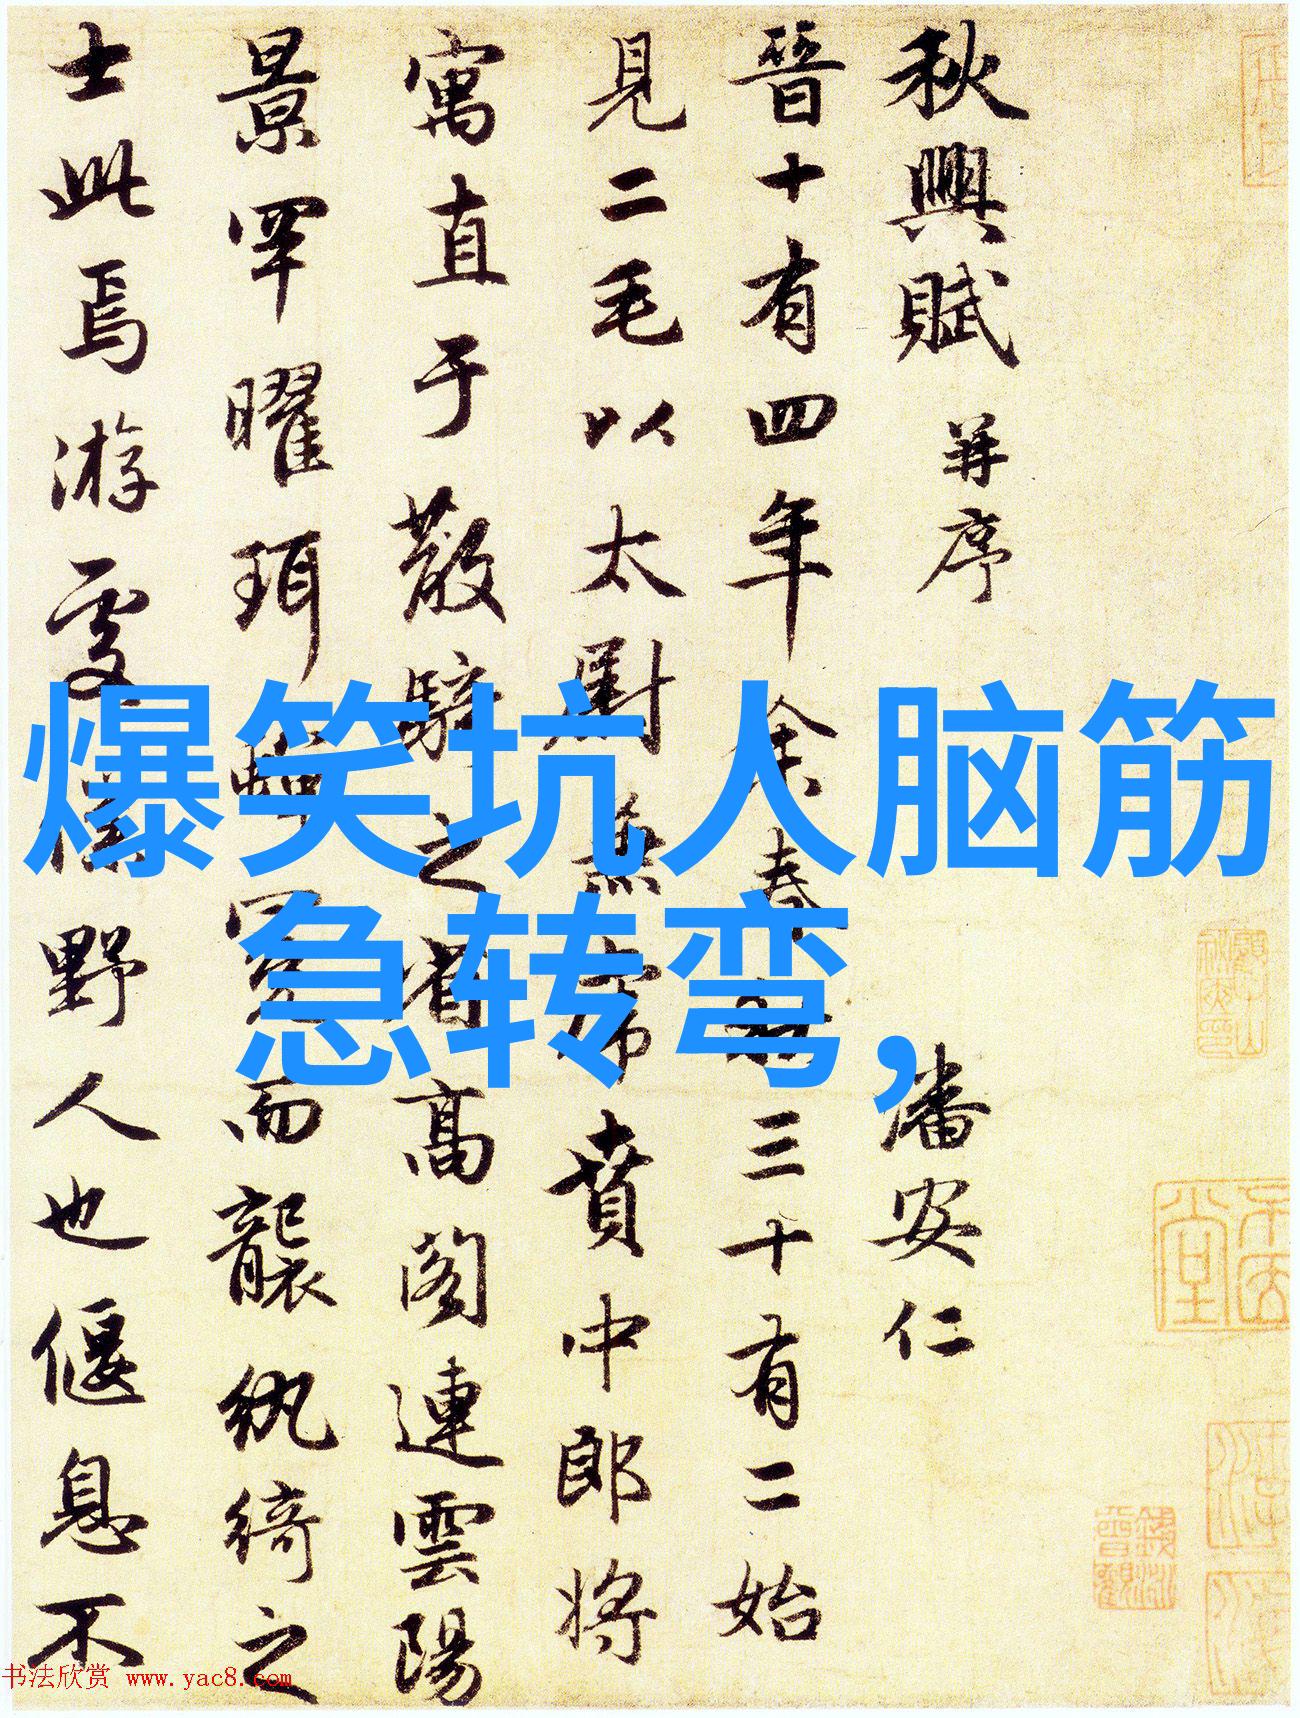 爆笑坑人脑筋
急转弯，
秋興賦 并序 潘安仁
晉十有四年余春秋三十有二始
見二毛以太尉兼虎賁中郎將
寓直于散騎之省高閣連雲陽
景罕曜珥蟬冕而襲紈綺之
士此焉游處僕野人也偃息不
书法欣赏 www.yac8.com